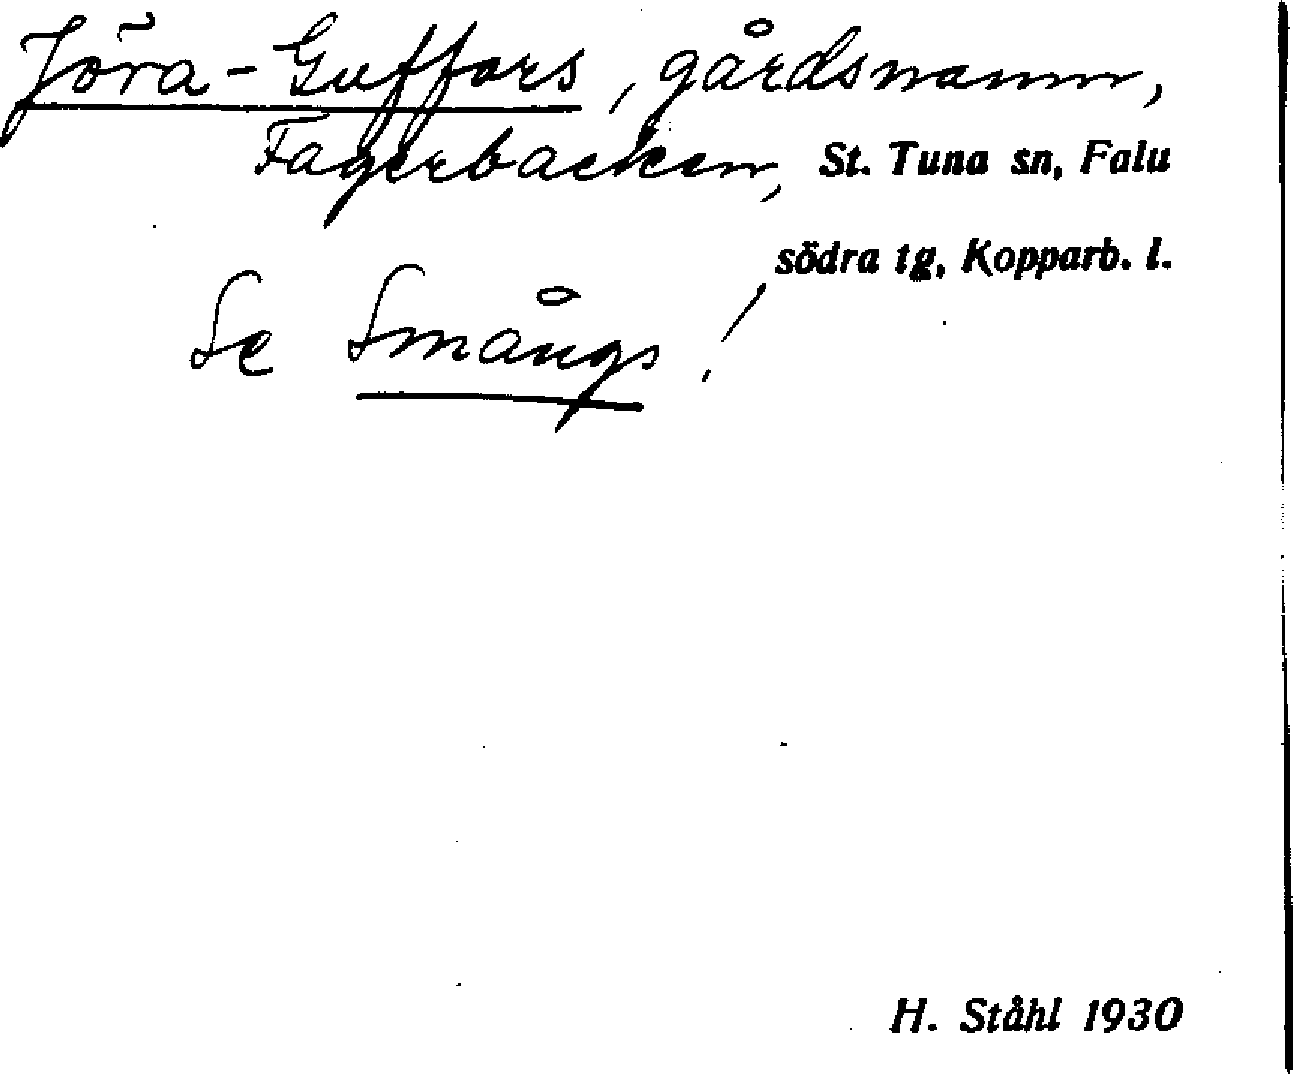 Jöra-Guffars, gårdsnamn,
Fagerbacken, St. Tuna sn, Falu
södra tg, Kopparb. l.
Se Smångs!
H. Ståhl 1930